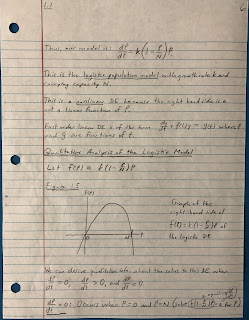 1.1
6
Thus, our model is: dP/dt = k(1 - P/N)P.
This is the logistic population model with growth rate k and
carrying capacity N.
This is a nonlinear DE because the right hand side is a
not a linear function of P.
First order linear DE is of the form dy/dt + f(t)y = g(t) where f
and g are functions of t.
Qualitative Analysis of the Logistic Model
Let f(P) = k(1 - P/N)P
Figure 1.5
f(P)
Graph of the
right-hand side of
f(P) = k(1 - P/N)P of
the logistic DE
0
N
P
We can derive qualitative info about the solns to this DE when
dP/dt = 0, dP/dt > 0, and
dP/dt = 0: Occurs when P=0 and P=N